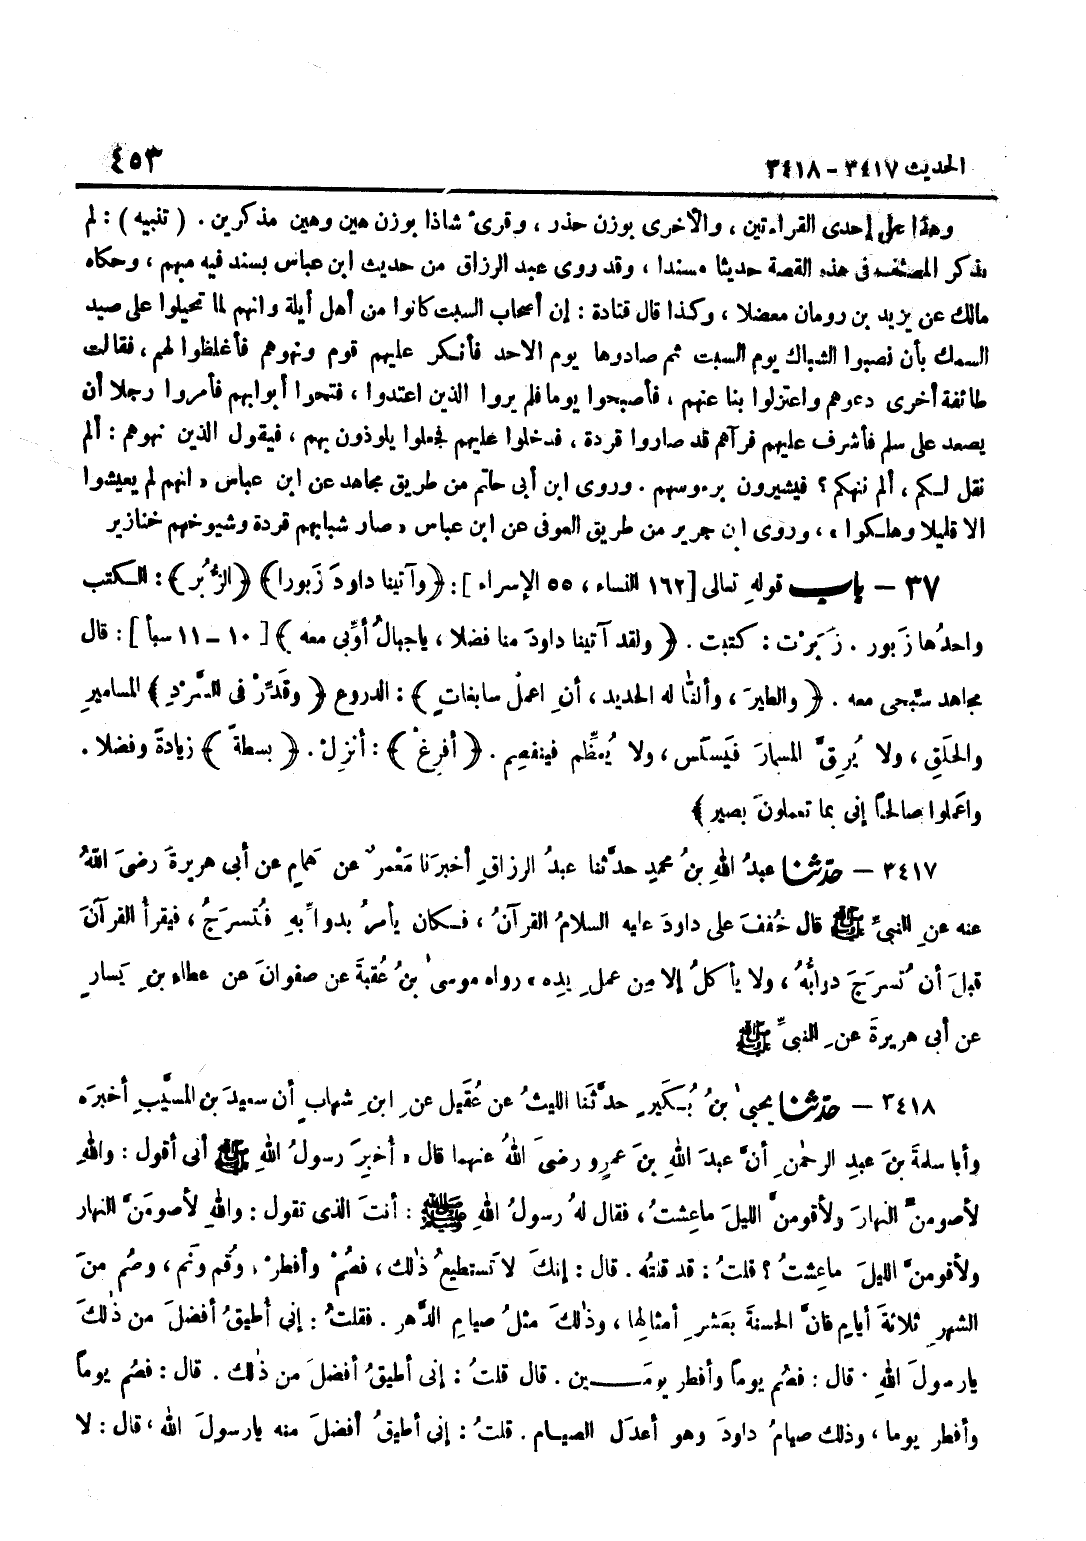 الحديث ٣٤١٧ - ٣٤١٨
٤٥٣
وهذا على إحدى القراءتين ، والأخرى بوزن حذر ، وقرئ شاذا بوزن هين وهين مذكرين . ( تنبيه ) : لم
يذكر المصنف فى هذه القصة حديثا مسندا ، وقد روى عبد الرزاق من حديث ابن عباس بسند فيه مبهم ، وحكاه
مالك عن يزيد بن رومان معضلا ، وكذا قال قتادة : إن أصحاب السبت كانوا من أهل أيلة وانهم لما تحيلوا على صيد
السمك بأن نصبوا الشباك يوم السبت ثم صادوها يوم الاحد فأنكر عليهم قوم ونهوهم فأغلظوا لهم ، فقالت
طائفة أخرى دعوهم واعتزلوا بنا عنهم ، فأصبحوا يوما فلم يروا الذين اعتدوا ، فتحوا أبوابهم فأمروا رجلا أن
يصعد على سلم فأشرف عليهم فرآهم قد صاروا قردة ، فدخلوا عليهم فجعلوا يلوذون بهم ، فيقول الذين نهوهم : ألم
نقل لكم ، ألم ننهكم ؟ فيشيرون برءوسهم . وروى ابن أبى حاتم من طريق مجاهد عن ابن عباس « انهم لم يعيشوا
الا قليلا وهلكوا » ، وروى ابن جرير من طريق العوفى عن ابن عباس « صار شبابهم قردة وشيوخهم خنازير
٣٧ - باب قولهِ تعالى [ ١٦٢ النساء ، ٥٥ الإسراء ] : ﴿ وآتينا داودَ زَبورا ﴾ ﴿ الزُّبُر ﴾ : الكتب
واحدُها زَبور . زَبَرْت : كتبت . ﴿ ولقد آتينا داودَ منا فضلا ، ياجبالُ أوِّبى معه ﴾ [ ١٠ - ١١ سبأ ] : قال
مجاهد سَبِّحى معه . ﴿ والطيرَ ، وألنّا له الحديد ، أنِ اعملْ سابغاتٍ ﴾ : الدروع ﴿ وقَدِّرْ فى السَّرْدِ ﴾ المساميرِ
والحَلَقِ ، ولا يُرِقَّ المسمارَ فيَسلَس ، ولا يُعظِّم فينفصِم . ﴿ أفرِغْ ﴾ : أنزِلْ . ﴿ بسطةً ﴾ زيادةً وفضلا .
واعمَلوا صالحاً إنى بما تعملونَ بصير ﴾
٣٤١٧ - حدّثنا عبدُ اللهِ بنُ محمدٍ حدَّثنا عبدُ الرزاقِ أخبرَنا مَعْمرٌ عن هَمّامٍ عن أبى هريرةَ رضىَ اللهُ
عنه عنِ النبىِّ ﷺ قال خُففَ على داودَ عليه السلامُ القرآنُ ، فكان يأمرُ بدوابِّهِ فتُسرَجُ ، فيقرأُ القرآنَ
قبلَ أن تُسرَجَ دوابُّهُ ، ولا يأكلُ إلا مِن عملِ يدِه » رواه موسىٰ بنُ عُقبةَ عن صفوانَ عن عطاءِ بنِ يَسارٍ
عن أبى هريرةَ عنِ النبىِّ ﷺ
٣٤١٨ - حدّثنا يحيىٰ بنُ بُكَيرٍ حدَّثَنا الليثُ عن عُقَيلٍ عنِ ابنِ شهابٍ أن سعيدَ بن المسيَّبِ أخبرَه
وأبا سلمةَ بنَ عبدِ الرحمٰنِ أنَّ عبدَ اللهِ بنَ عمرٍو رضىَ اللهُ عنهما قال « أُخبِرَ رسولُ اللهِ ﷺ أنى أقول : واللهِ
لأصومنَّ النهارَ ولأقومنَّ الليلَ ماعِشتُ ، فقال لهُ رسولُ اللهِ ﷺ : أنتَ الذى تقول : واللهِ لأصومَنَّ النهار
ولأقومنَّ الليلَ ماعِشتُ ؟ قلتُ : قد قلتُه . قال : إنكَ لا تَستطيعُ ذٰلك ، فصُمْ وأفطرْ ، وقُم ونَم ، وصُم منَ
الشهرِ ثلاثةَ أيامٍ فانَّ الحسنةَ بعَشرِ أمثالِها ، وذٰلكَ مثلُ صيامِ الدَّهر . فقلتُ : إنى أُطيقُ أفضلَ من ذٰلكَ
يارسولَ اللهِ . قال : فصُم يوماً وأفطر يومَين . قال قلتُ : إنى أطيقُ أفضلَ من ذٰلك . قال : فصُم يوماً
وأفطر يوما ، وذلك صيامُ داودَ وهو أعدَل الصيام . قلتُ : إنى أطيقُ أفضلَ منه يارسولَ الله ، قال : لا